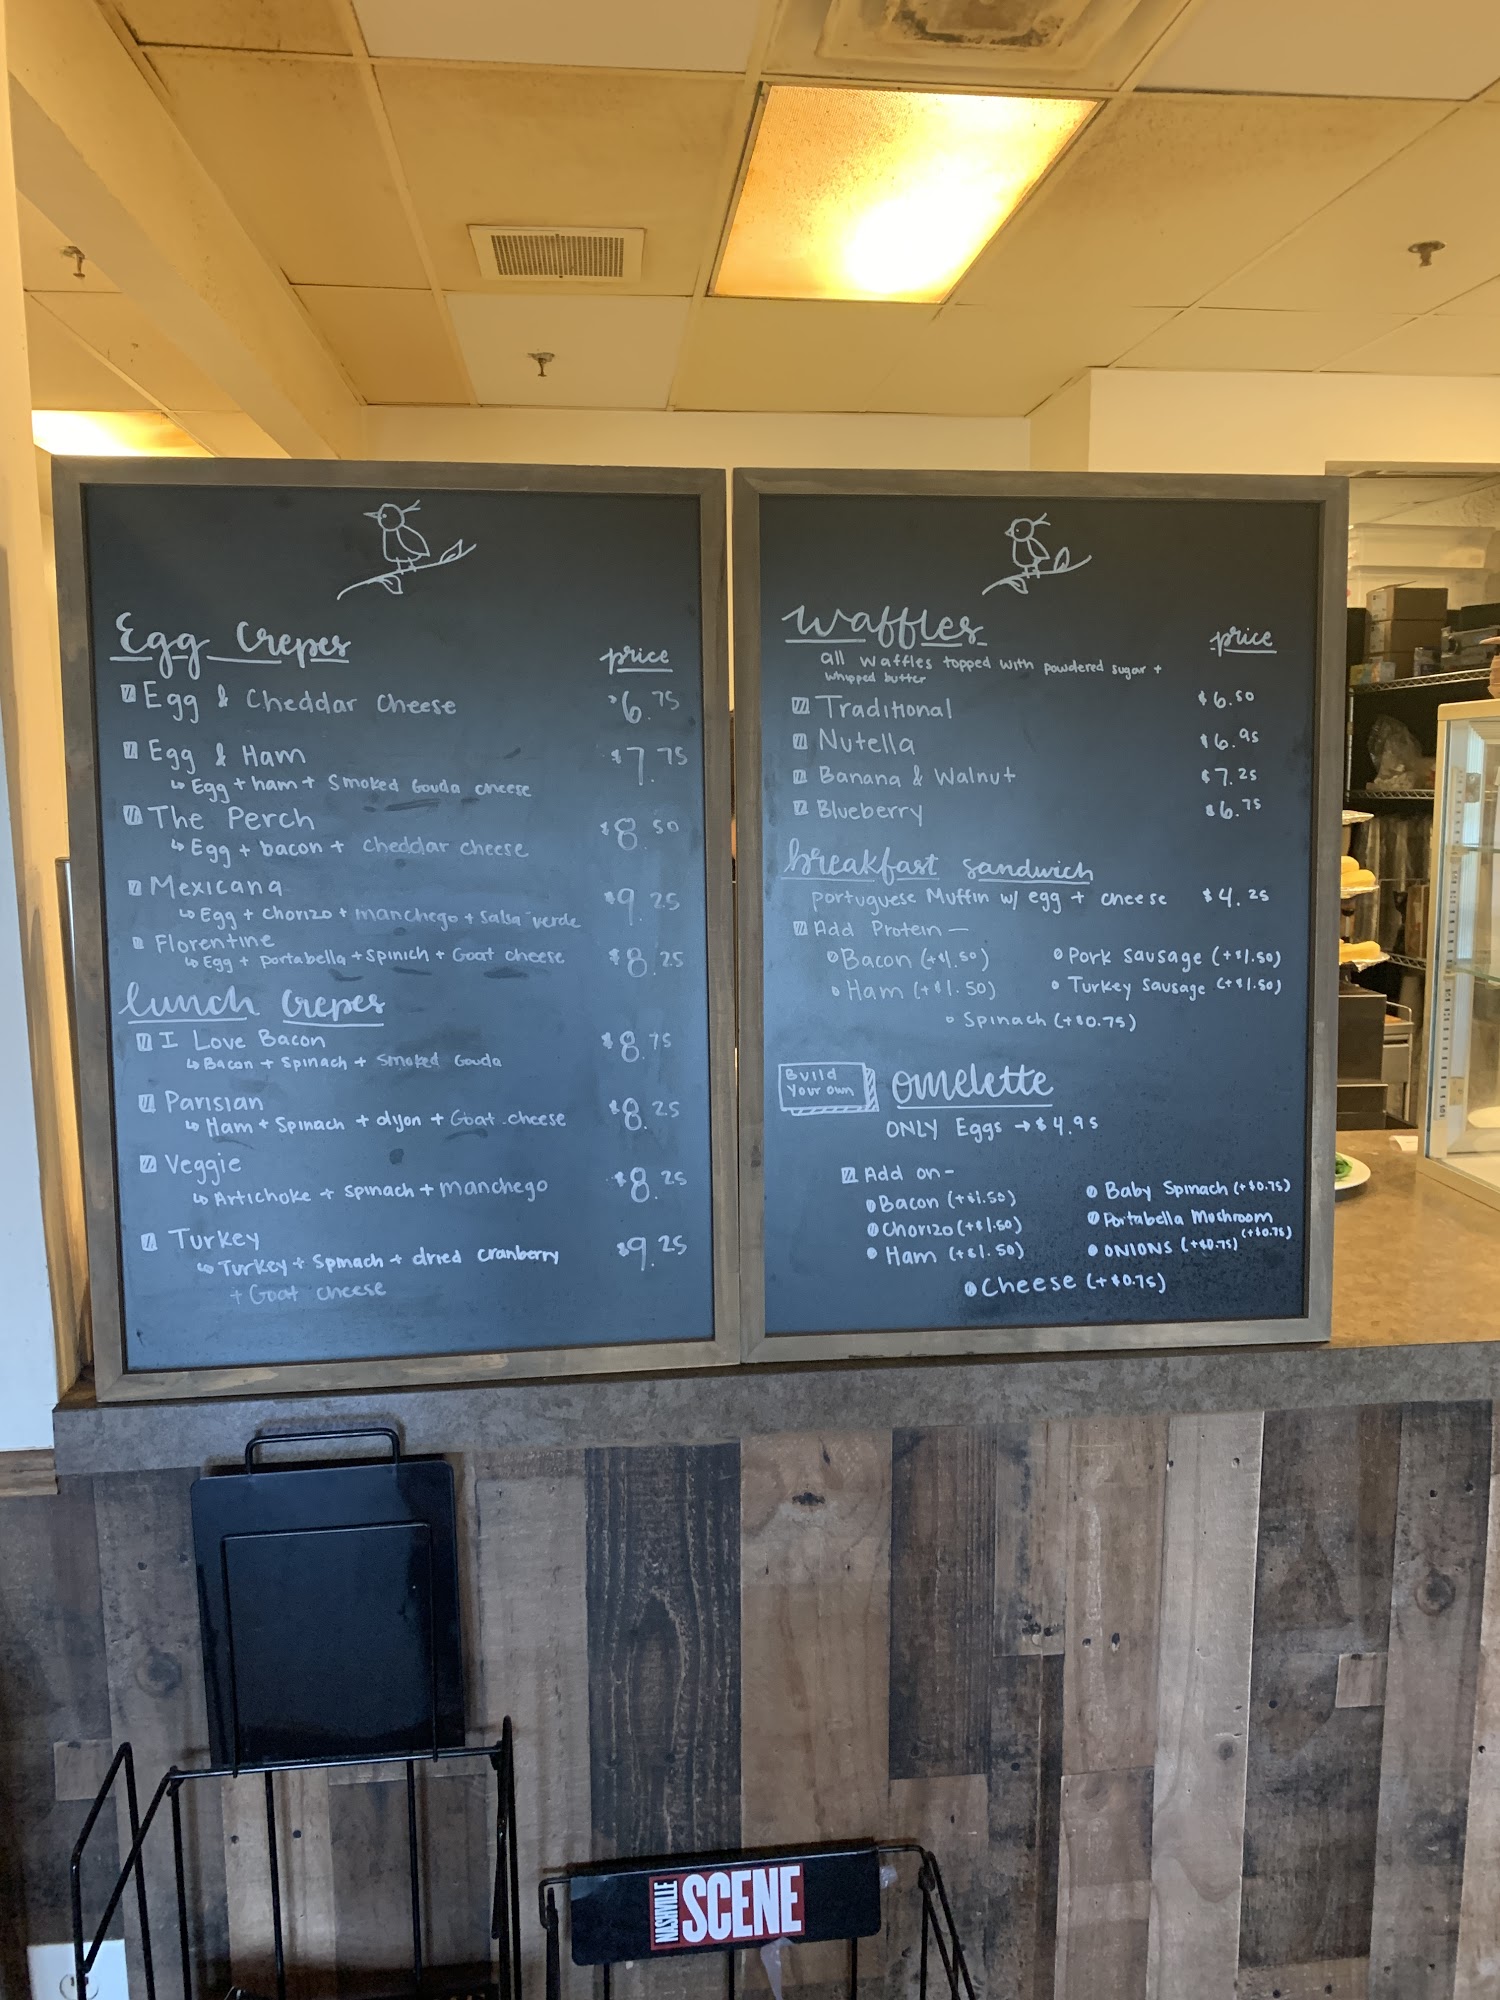 Egg Crepes
price
Egg & Cheddar Cheese $6.75
Egg & Ham $7.75
↳ Egg + ham + Smoked Gouda cheese
The Perch $8.50
↳ Egg + bacon + cheddar cheese
Mexicana $9.25
↳ Egg + chorizo + manchego + salsa verde
Florentine $8.25
↳ Egg + portabella + spinich + Goat cheese
lunch crepes
I Love Bacon $8.75
↳ Bacon + Spinach + Smoked Gouda
Parisian $8.25
↳ Ham + Spinach + dijon + Goat cheese
Veggie $8.25
↳ Artichoke + spinach + manchego
Turkey $9.25
↳ Turkey + Spinach + dried cranberry
+ Goat cheese
waffles
price
all waffles topped with powdered sugar +
whipped butter
Traditional $6.50
Nutella $6.95
Banana & Walnut $7.25
Blueberry $6.75
breakfast sandwich
portuguese Muffin w/ egg + cheese $4.25
Add Protein —
Bacon (+$1.50) Pork Sausage (+$1.50)
Ham (+$1.50) Turkey Sausage (+$1.50)
Spinach (+$0.75)
Build
Your Own
omelette
ONLY Eggs → $4.95
Add on -
Bacon (+$1.50) Baby Spinach (+$0.75)
Chorizo (+$1.50) Portabella Mushroom (+$0.75)
Ham (+$1.50) ONIONS (+$0.75)
Cheese (+$0.75)
NASHVILLE
SCENE